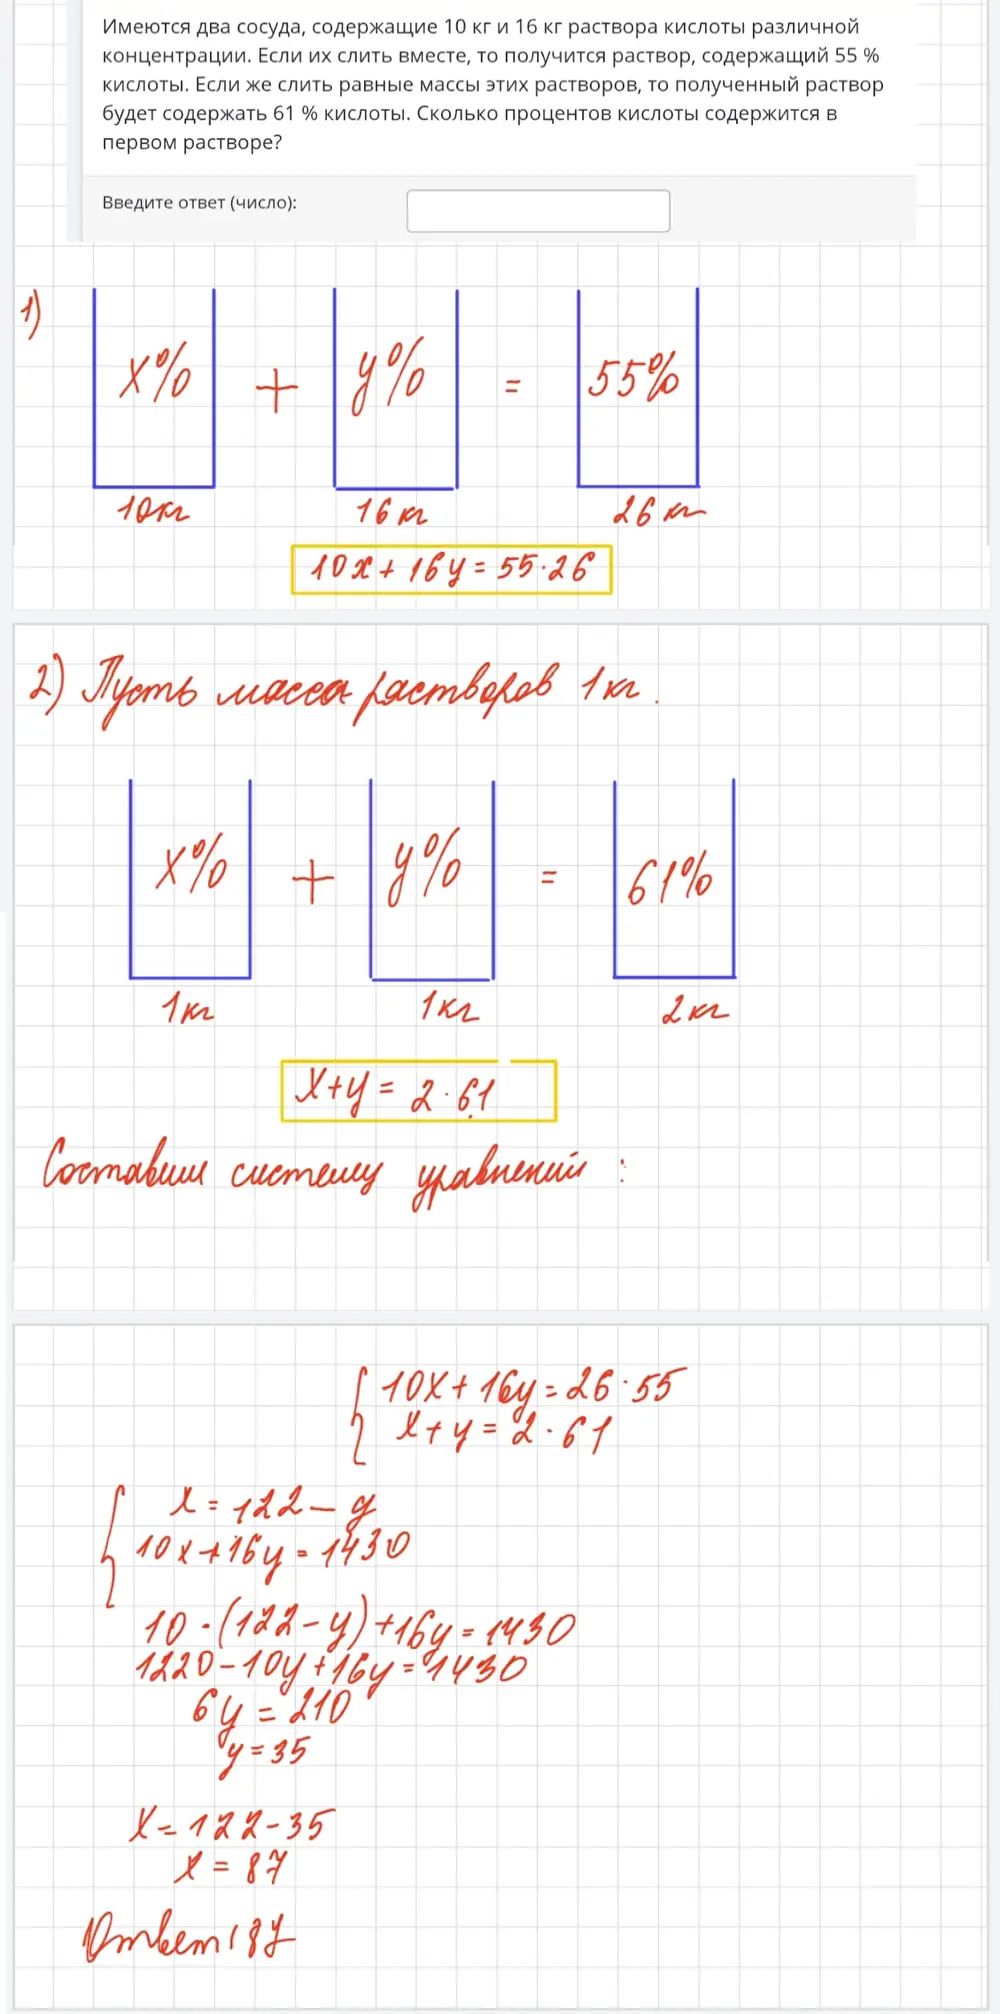 Имеются два сосуда, содержащие 10 кг и 16 кг раствора кислоты различной
концентрации. Если их слить вместе, то получится раствор, содержащий 55 %
кислоты. Если же слить равные массы этих растворов, то полученный раствор
будет содержать 61 % кислоты. Сколько процентов кислоты содержится в
первом растворе?
Введите ответ (число):
1)
x% + y% = 55%
10кг 16 кг 26 кг
10x + 16y = 55·26
2) Пусть масса растворов 1 кг.
x% + y% = 61%
1кг 1кг 2 кг
x+y = 2·61
Составим систему уравнений:
10x + 16y = 26·55
x + y = 2·61
x = 122 – y
10x + 16y = 1430
10·(122 – y) + 16y = 1430
1220 – 10y + 16y = 1430
6y = 210
y = 35
x = 122 – 35
x = 87
Ответ: 87